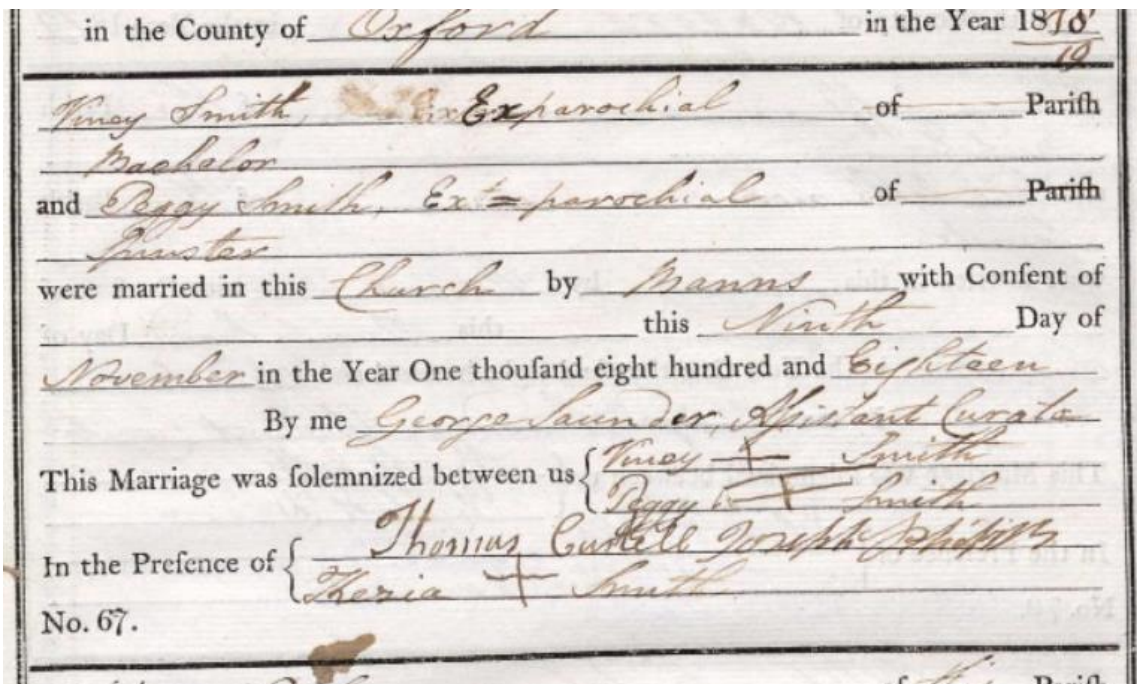 in the County of Oxford in the Year 1818
19
Viney Smith, Exparochial of Pariſh
Bachelor
and Peggy Smith, Ex = parochial of Pariſh
Spinster
were married in this Church by Banns with Conſent of
this Ninth Day of
November in the Year One thouſand eight hundred and Eighteen
By me George Saunder, Aſsistant Curate
This Marriage was ſolemnized between us { Viney + Smith
Peggy + Smith
In the Preſence of { Thomas Joseph
+ Smith
No. 67.
of this Pariſh